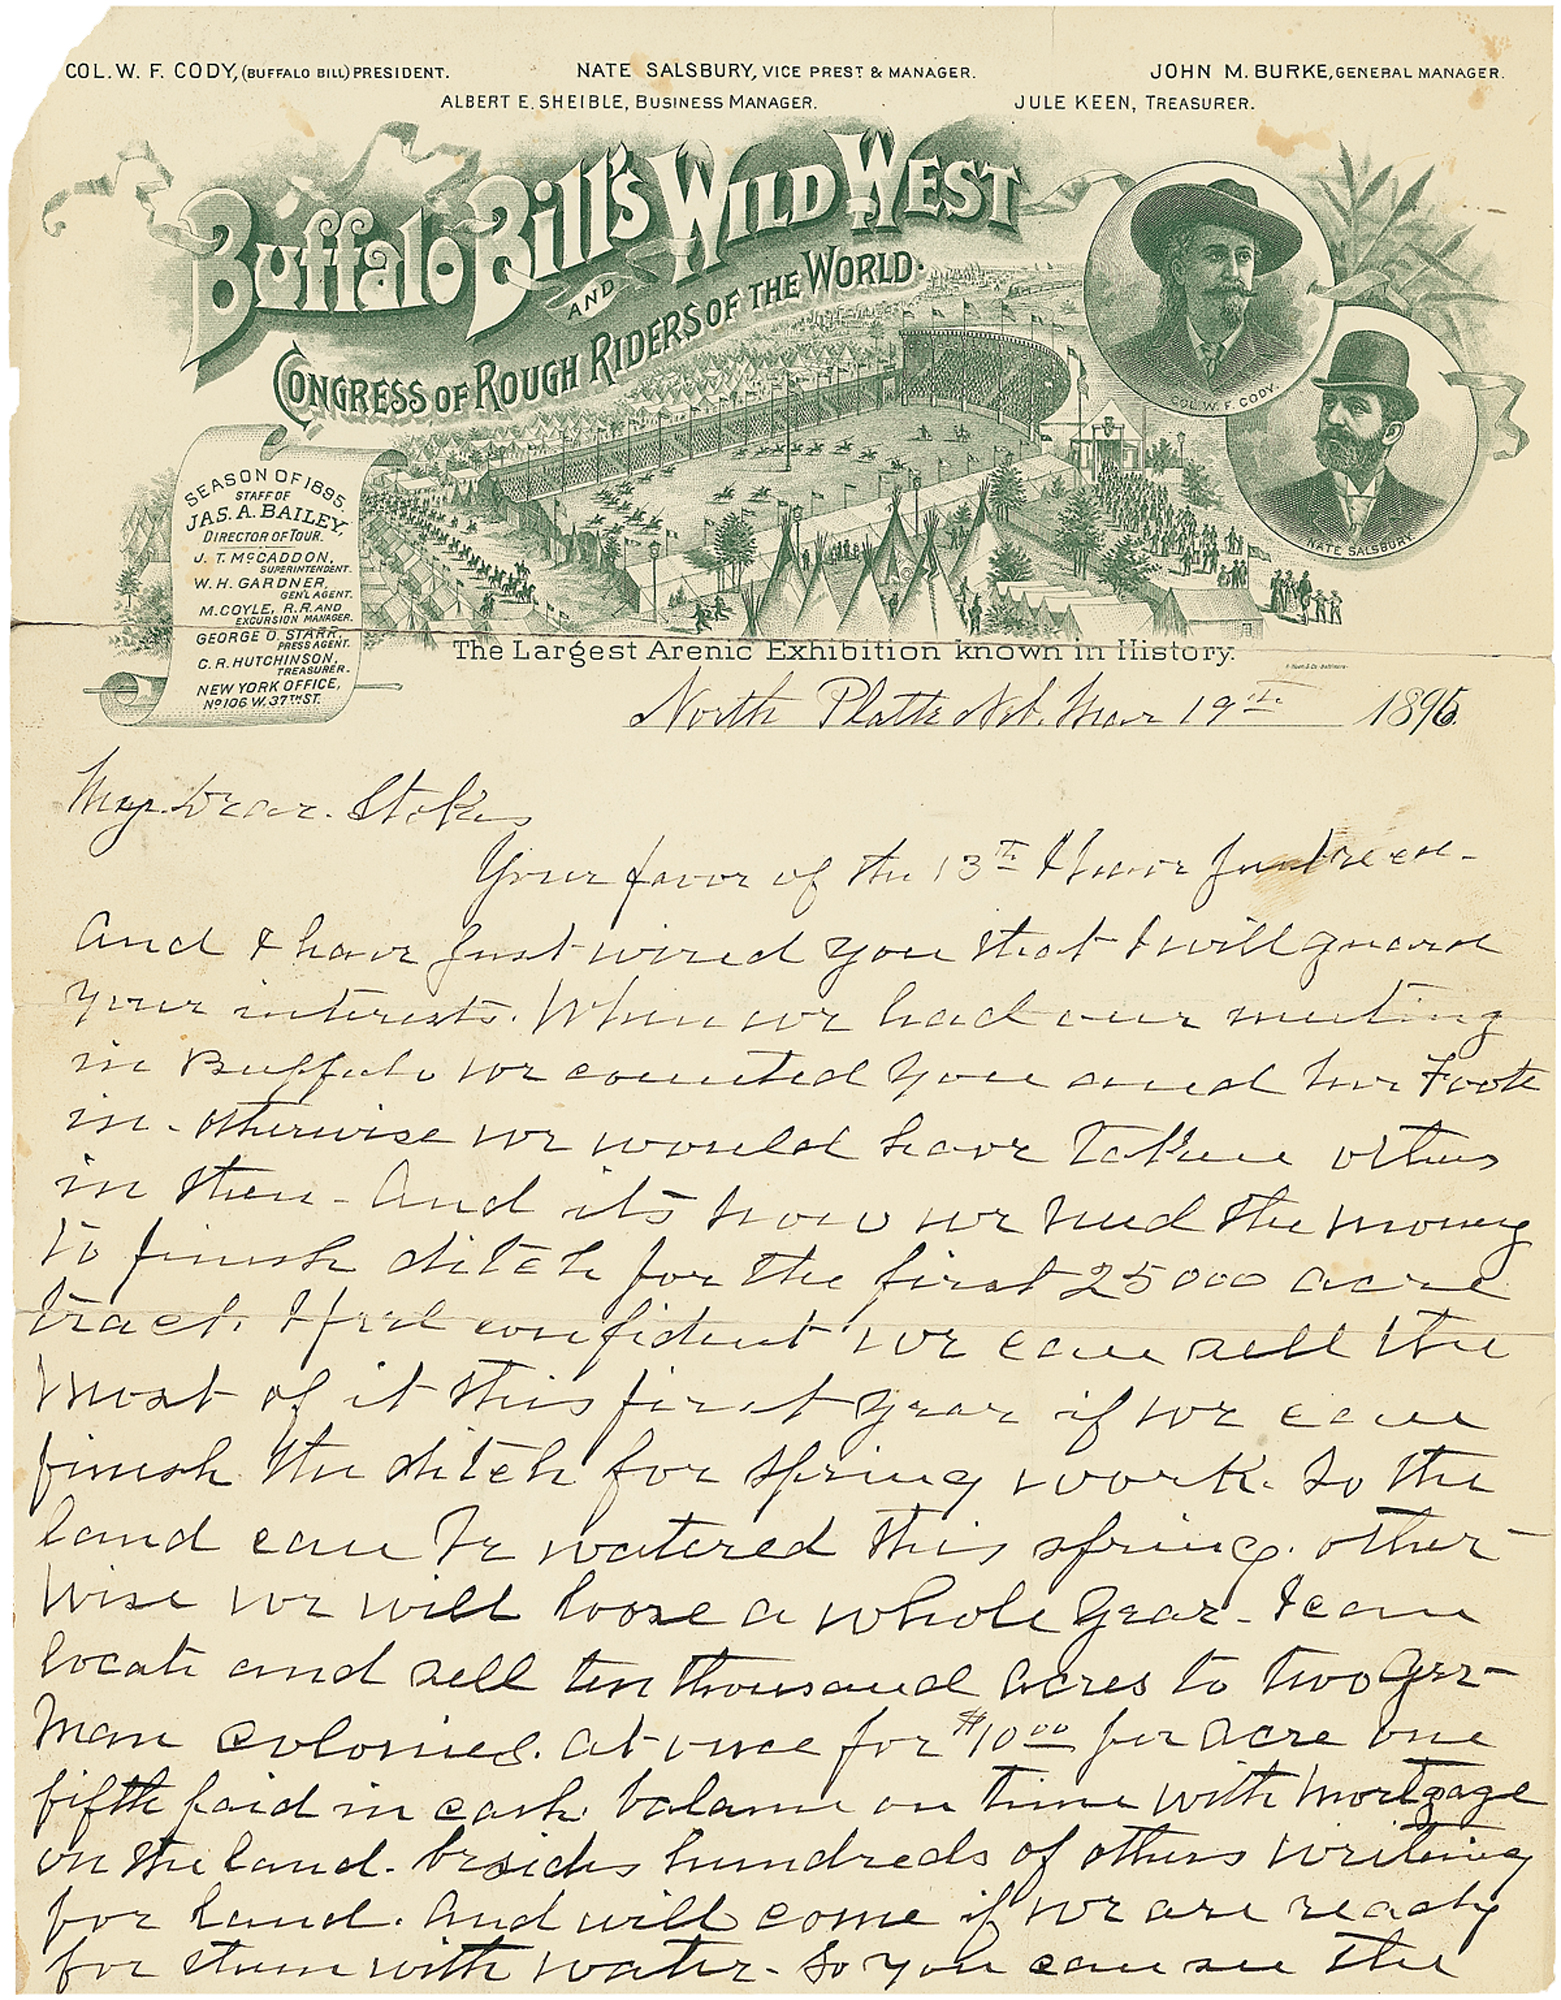 COL. W. F. CODY, (BUFFALO BILL) PRESIDENT.
NATE SALSBURY, VICE PREST & MANAGER.
JOHN M. BURKE, GENERAL MANAGER.
ALBERT E. SHEIBLE, BUSINESS MANAGER.
JULE KEEN, TREASURER.
Buffalo Bill's Wild West
AND
CONGRESS OF ROUGH RIDERS OF THE WORLD.
COL. W. F. CODY.
NATE SALSBURY.
SEASON OF 1895.
STAFF OF
JAS. A. BAILEY,
DIRECTOR OF TOUR.
J. T. McCADDON,
SUPERINTENDENT.
W. H. GARDNER,
GEN'L AGENT.
M. COYLE, R.R. AND
EXCURSION MANAGER.
GEORGE O. STARR,
PRESS AGENT.
C. R. HUTCHINSON,
TREASURER.
NEW YORK OFFICE,
No 106 W. 37TH ST.
The Largest Arenic Exhibition known in History.
North Platte Neb. Mar 19th 1896.
My Dear. Stokes
Your favor of the 13th I have Just recd.
And I have Just wired you that I will guard
your interests. When we had our meeting
in Buffalo we counted you and Mr Foote
in. Otherwise we would have taken others
in then - And its now we need the money
to finish ditch for the first 25000 acre
tract. I feel confident we can sell the
most of it this first year if we can
finish the ditch for spring work. So the
land can be watered this spring. other-
wise we will loose a whole year. I can
locate and sell ten thousand acres to two Ger-
man colonies. at once for $10 00 per acre one
fifth paid in cash. balance on time with mortgage
on the land. besides hundreds of others writing
for land. And will come if we are ready
for them with water. So you can see the